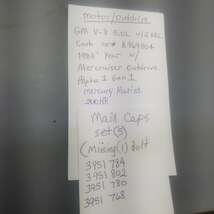 motor/outdrive
GM V-8 5.0L
1988 Year w/
Mercruiser Outdrive
Alpha 1 Gen 1
mercury Marine
Main Caps
set(5)
(Missing(1) bolt
3951 784
3951 802
3951 780
3951 768